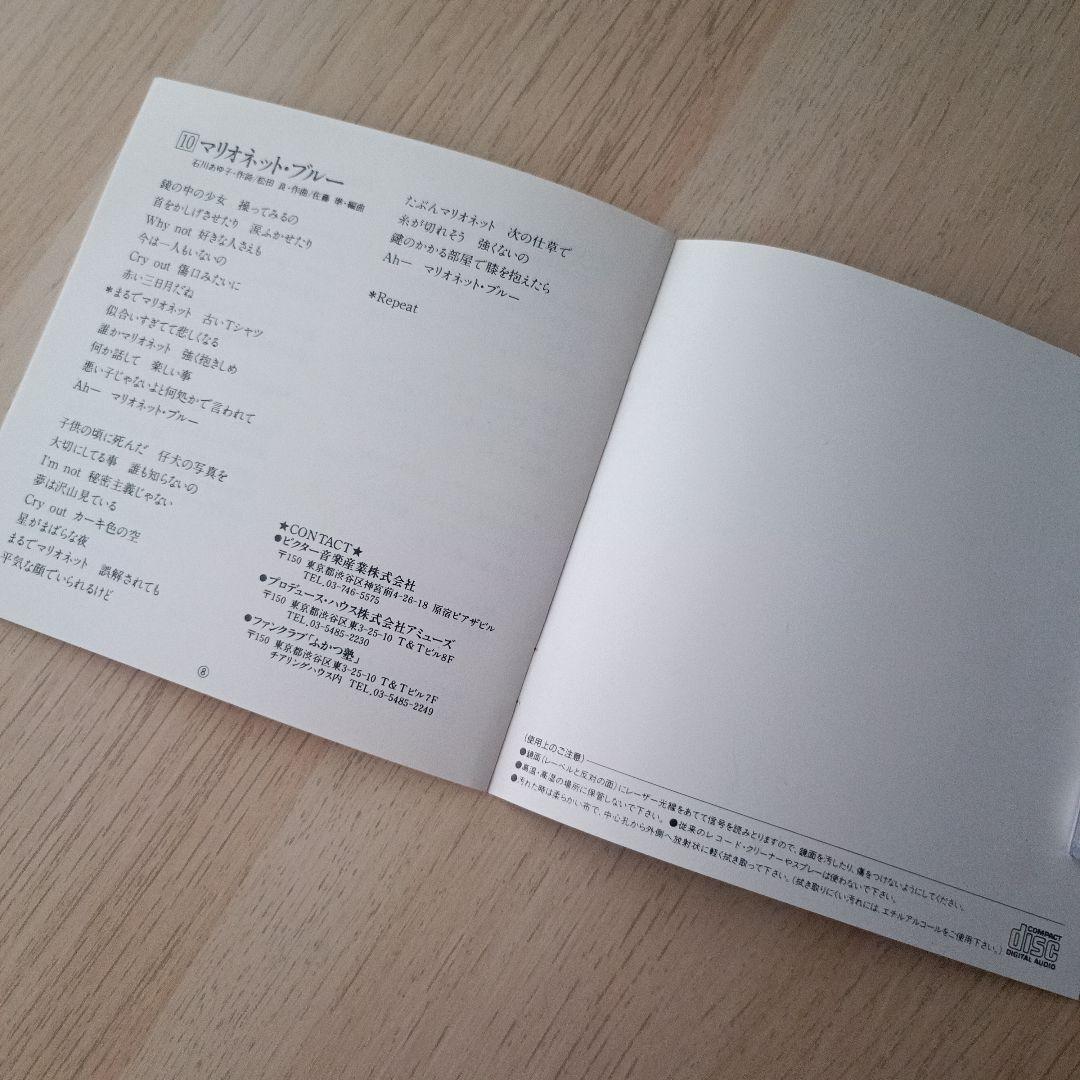 10 マリオネット・ブルー
石川あゆ子・作詞/松田 良・作曲/佐藤 準・編曲
鏡の中の少女 操ってみるの
首をかしげさせたり 涙ふかせたり
Why not 好きな人さえも
今は一人もいないの
Cry out 傷口みたいに
赤い三日月だね
*まるでマリオネット 古いTシャツ
似合いすぎてて悲しくなる
誰かマリオネット 強く抱きしめ
何か話して 楽しい事
悪い子じゃないよと何処かで言われて
Ahー マリオネット・ブルー
子供の頃に死んだ 仔犬の写真を
大切にしてる事 誰も知らないの
I'm not 秘密主義じゃない
夢は沢山見ている
Cry out カーキ色の空
星がまばらな夜
まるでマリオネット 誤解されても
平気な顔でいられるけど
たぶんマリオネット 次の仕草で
糸が切れそう 強くないの
鍵のかかる部屋で膝を抱えたら
Ahー マリオネット・ブルー
*Repeat
★CONTACT★
●ビクター音楽産業株式会社
〒150 東京都渋谷区神宮前4-26-18 原宿ピアザビル
TEL.03-746-5575
●プロデュース・ハウス株式会社アミューズ
〒150 東京都渋谷区東3-25-10 T&Tビル8F
TEL.03-5485-2230
●ファンクラブ「ふかつ塾」
〒150 東京都渋谷区東3-25-10 T&Tビル7F
チアリングハウス内 TEL.03-5485-2249
⑧
(使用上のご注意)
●鏡面(レーベルと反対の面)にレーザー光線をあてて信号を読みとりますので、鏡面を汚したり、傷をつけないようにしてください。
●高温・高湿の場所に保管しないで下さい。 ●従来のレコード・クリーナーやスプレーは使わないで下さい。
●汚れた時は柔らかい布で、中心孔から外側へ放射状に軽く拭き取って下さい。(拭き取りにくい汚れには、エチルアルコールをご使用下さい。)
COMPACT
disc
DIGITAL AUDIO